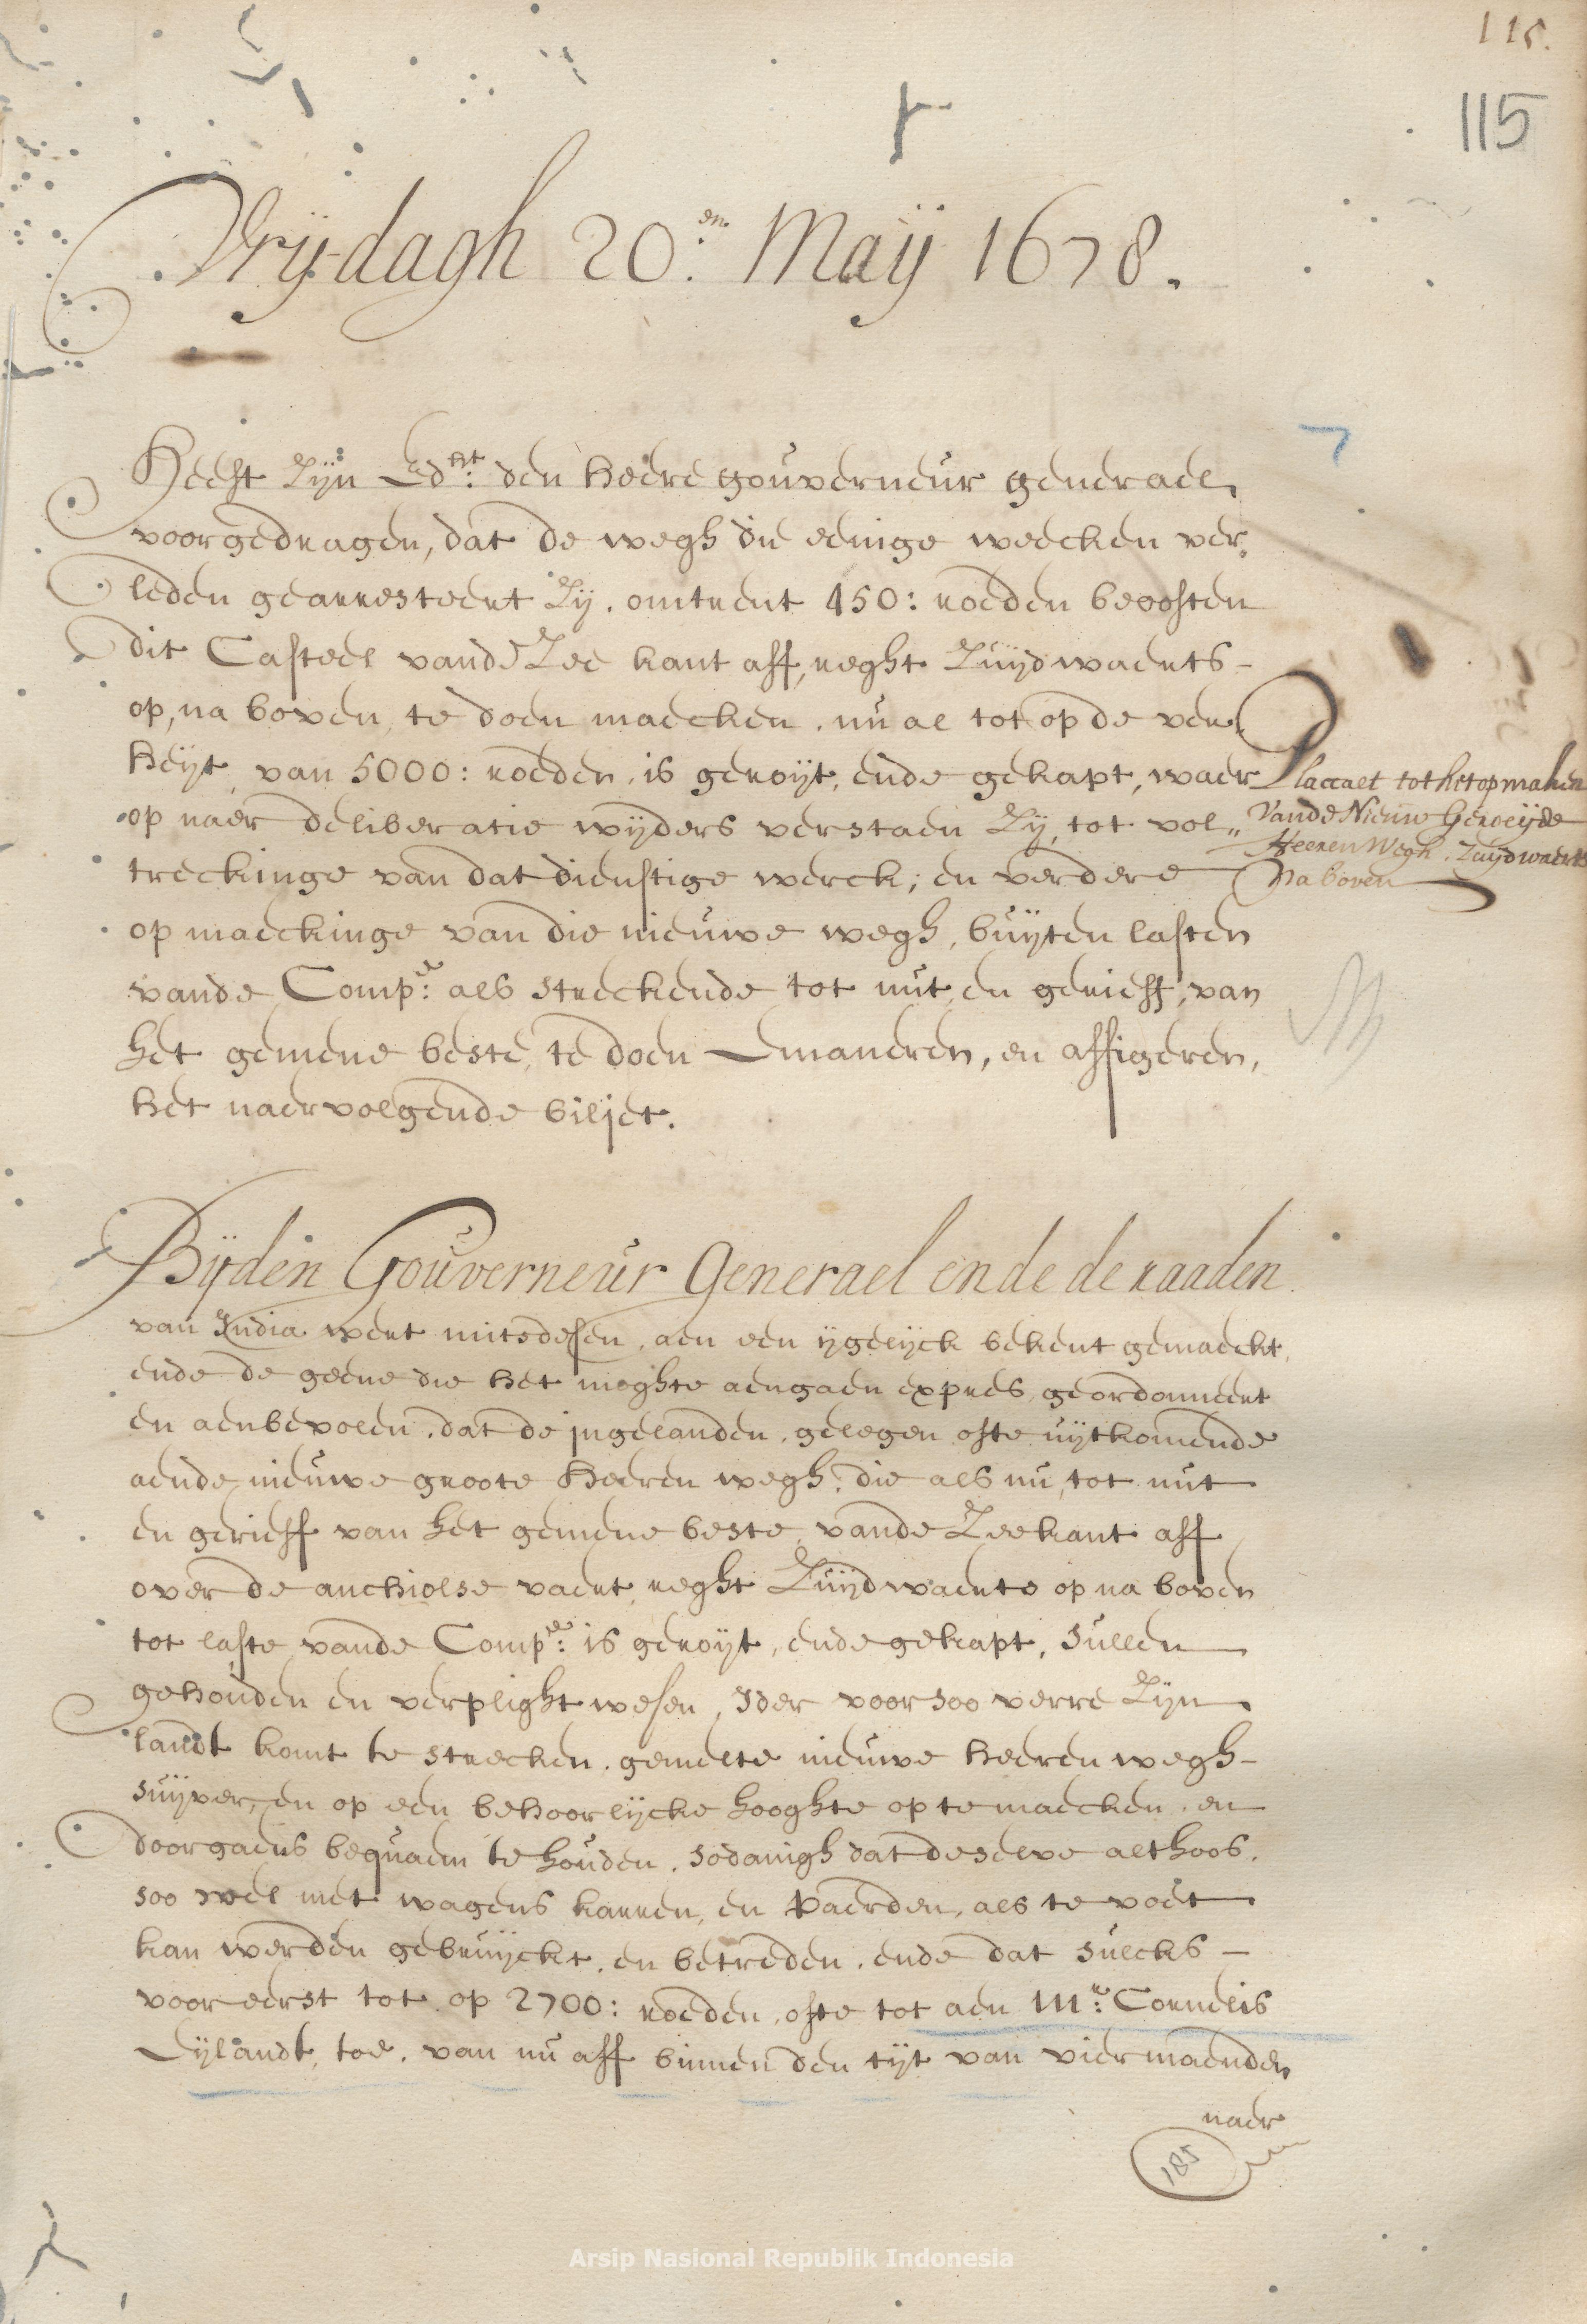 115.
115
Vrijdagh 20:en Maij 1678.
Heeft Zijn Edht: den heere gouverneur generael
voorgedragen, dat de wegh die eenige weecken ver,
leden gearresteert Zij, omtrent 450: roeden beoosten
dit Casteel vande Zee kant aff, reght Zuijdwaerts-
op, na boven, te doen maecken, nu al tot op de ver
heijt, van 5000: roeden, is geroijt, ende gekapt, waer
op naer deliberatie wijders verstaen Zij, tot vol„
treckinge van dat dienstige werck; en verdere
opmaeckinge van die nieuwe wegh, buijten lasten
vande Compe: als streckende tot nut, en gerieff, van
het gemene beste, te doen Emaneren, en affigeren,
het naervolgende biljet.
Placcaet tot het opmaken
Vande Nieuw Geroeijde
Heeren Wegh, Zuijdwaerts
Na boven
Bijden Gouverneur Generael ende de raaden
van India wert mitsdesen, aen een ijgelijck bekent gemaeckt,
ende de geene die het moghte aengaen expres, geordonneert
en aenbevolen, dat de jngelanden, gelegen ofte uijtkomende
aende nieuwe groote Heeren wegh, die als nu, tot nut
en gerieff van het gemene beste, vande Zeekant aff
over de anchiolse vaert, reght Zuijdwaerts op na boven
tot laste vande Compe: is geroijt, ende gekapt, sullen
gehouden en verplight wesen, Ider voor soo verre Zijn
landt komt te strecken, gemelte nieuwe heeren wegh-
suijver, en op een behoorlijcke hooghte op te maecken, en
doorgaens bequaem te houden, sodanigh dat deselve althoos,
soo wel met wagens karren, en paerden, als te voet
kan werden gebruijckt, en betreden, ende dat sulcks-
voor eerst tot op 2700: roeden, ofte tot aen Mr: Cornelis
Eijlandt, toe, van nu aff binnen den tijt van vier maenden
naer
185
Arsip Nasional Republik Indonesia